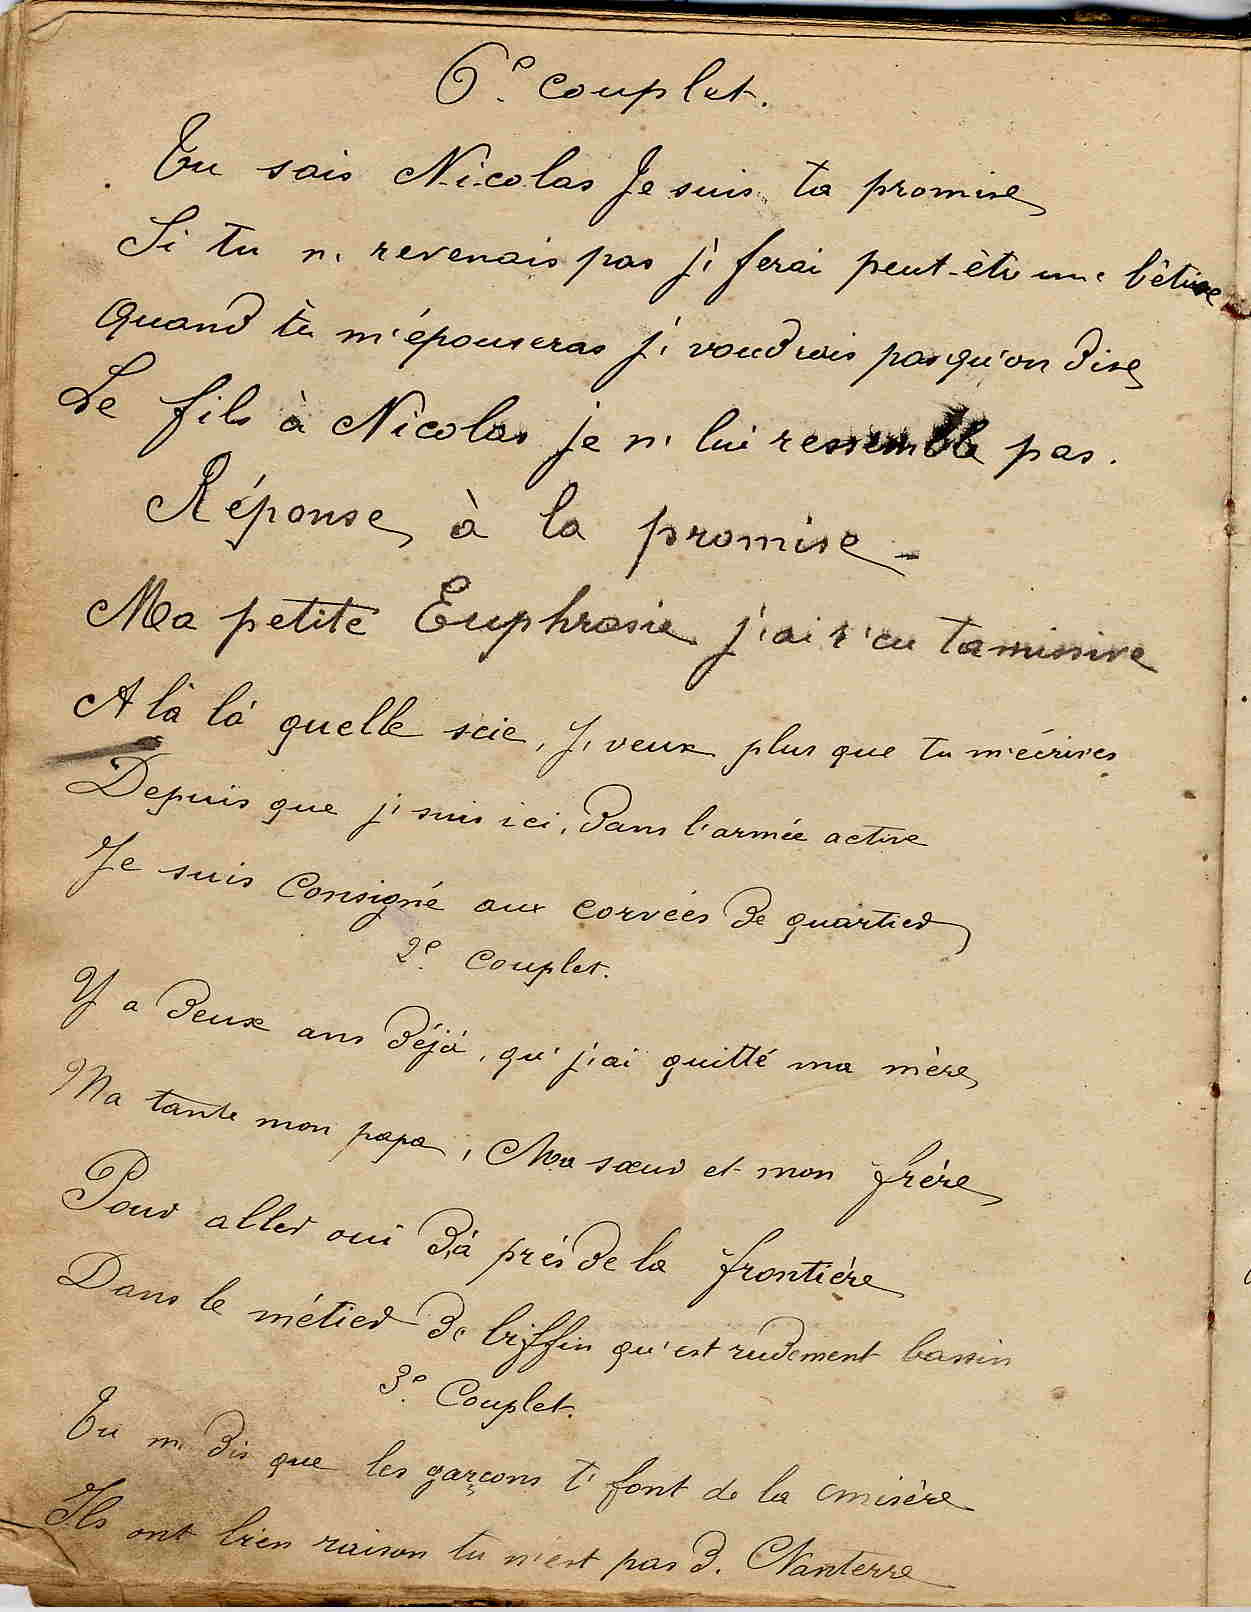 6e. couplet.
Tu sais Nicolas Je suis ta promise
Si tu n' revenais pas j' ferai peut-être une bêtise
Quand tu m'épouseras j' voudrais pas qu'on dise
Le fils à Nicolas je n' lui ressemble pas.
Réponse à la promise -
Ma petite Euphrasie j'ai r'cu ta missive
A là là quelle scie, j' veux plus que tu m'écrives
Depuis que j' suis ici, dans l'armée active
Je suis consigné aux corvées de quartier
2e. Couplet.
Y a deux ans déjà, qu' j'ai quitté ma mère
Ma tante mon papa, Ma sœur et mon frère
Pour aller oui dà près de la frontière
Dans le métier de biffin qu'est rudement bassin
3e. Couplet.
Tu m' dis que les garçons t' font de la misère
Ils ont bien raison tu n'est pas d' Nanterre